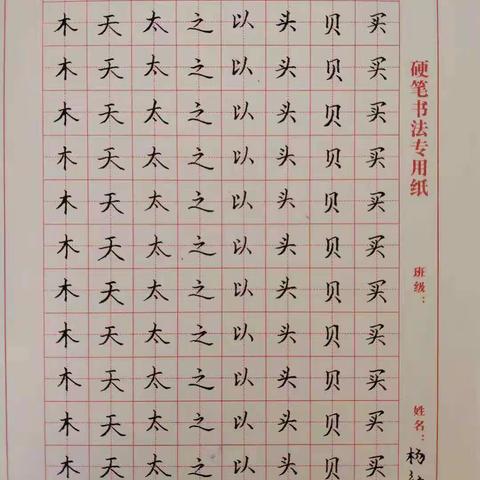 木 天 太 之 以 头 贝 买
木 天 太 之 以 头 贝 买
木 天 太 之 以 头 贝 买
木 天 太 之 以 头 贝 买
木 天 太 之 以 头 贝 买
木 天 太 之 以 头 贝 买
木 天 太 之 以 头 贝 买
木 天 太 之 以 头 贝 买
木 天 太 之 以 头 贝 买
木 天 太 之 以 头 贝 买
木 天 太 之 以 头 贝 买
硬笔书法专用纸
班级：
姓名：杨